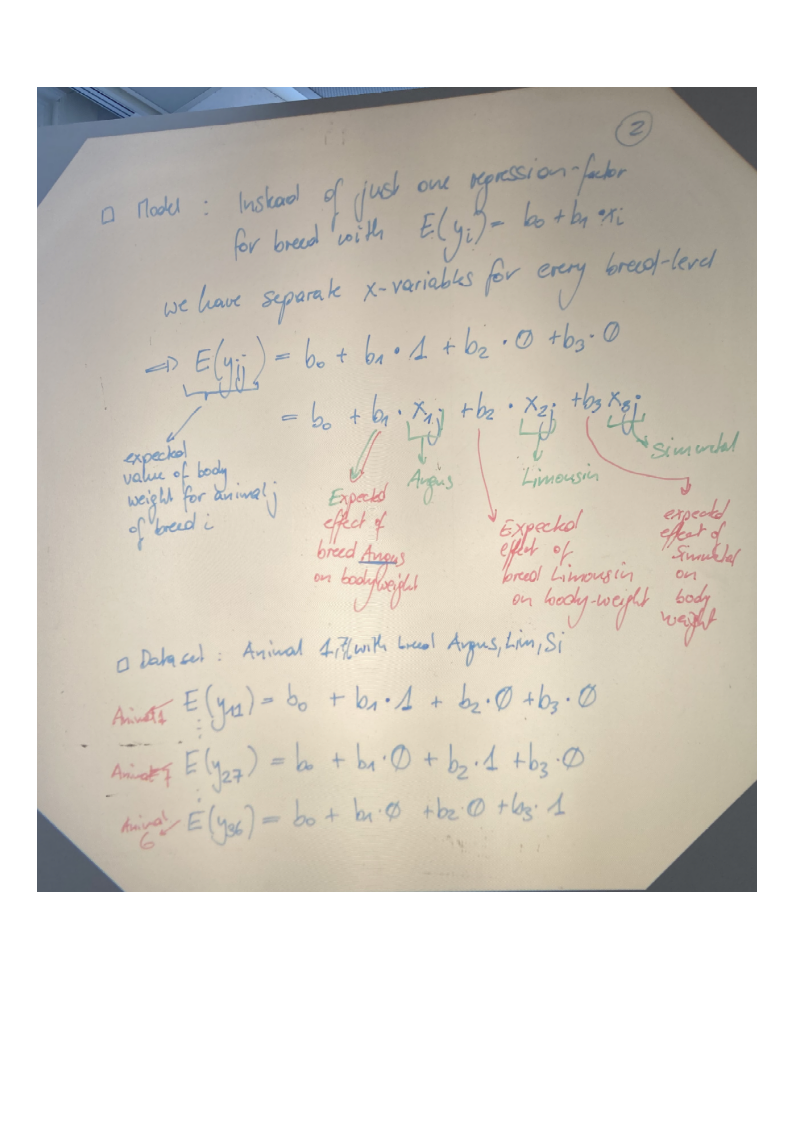 2
□ Model : Instead of just one regression-factor
for breed with E(yi) = b0 + b1 · xi
we have separate x-variables for every breed-level
⇒ E(yij) = b0 + b1 · 1 + b2 · 0 + b3 · 0
= b0 + b1 · x1j + b2 · x2j + b3 x3j
expected
value of body
weight for animal j
of breed i
Angus
Limousin
Simmental
Expected
effect of
breed Angus
on bodyweight
Expected
effect of
breed Limousin
on body-weight
expected
effect of
Simmental
on
body
weight
□ Dataset : Animal 1, 7, with breed Angus, Lim, Si
Animal 1 E(y11) = b0 + b1 · 1 + b2 · 0 + b3 · 0
Animal 7 E(y27) = b0 + b1 · 0 + b2 · 1 + b3 · 0
Animal 6 E(y36) = b0 + b1 · 0 + b2 · 0 + b3 · 1